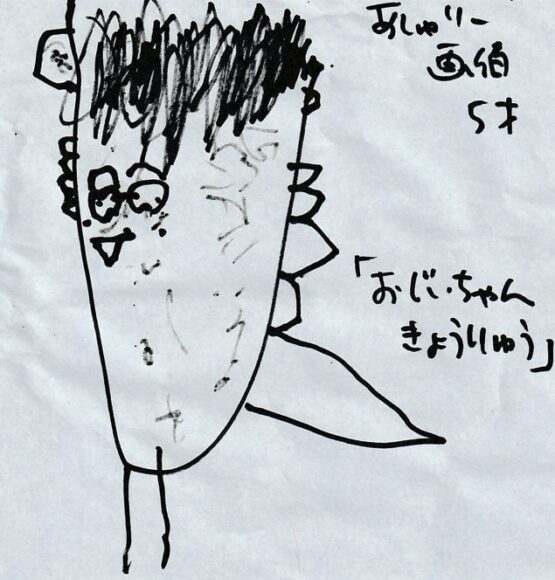 あしゅりー
画伯
5才
「おじいちゃん
きょうりゅう」